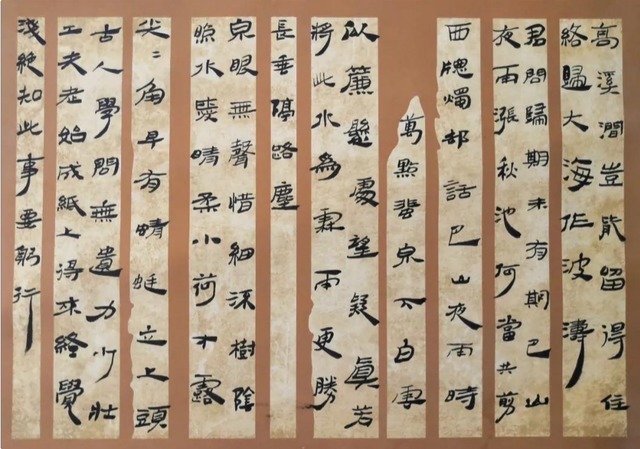 高溪澗豈能留得住
終歸大海作波濤
君問歸期未有期巴山
夜雨漲秋池何當共剪
西牕燭卻話巴山夜雨時
萬點蜚泉下白雲
似簾懸處望疑真若
將此水為霖雨更勝
長垂隔路塵
泉眼無聲惜細流樹陰
照水愛晴柔小荷才露
尖〻角早有蜻蜓立上頭
古人學問無遺力少壯
工夫老始成紙上得來終覺
淺絕知此事要躬行